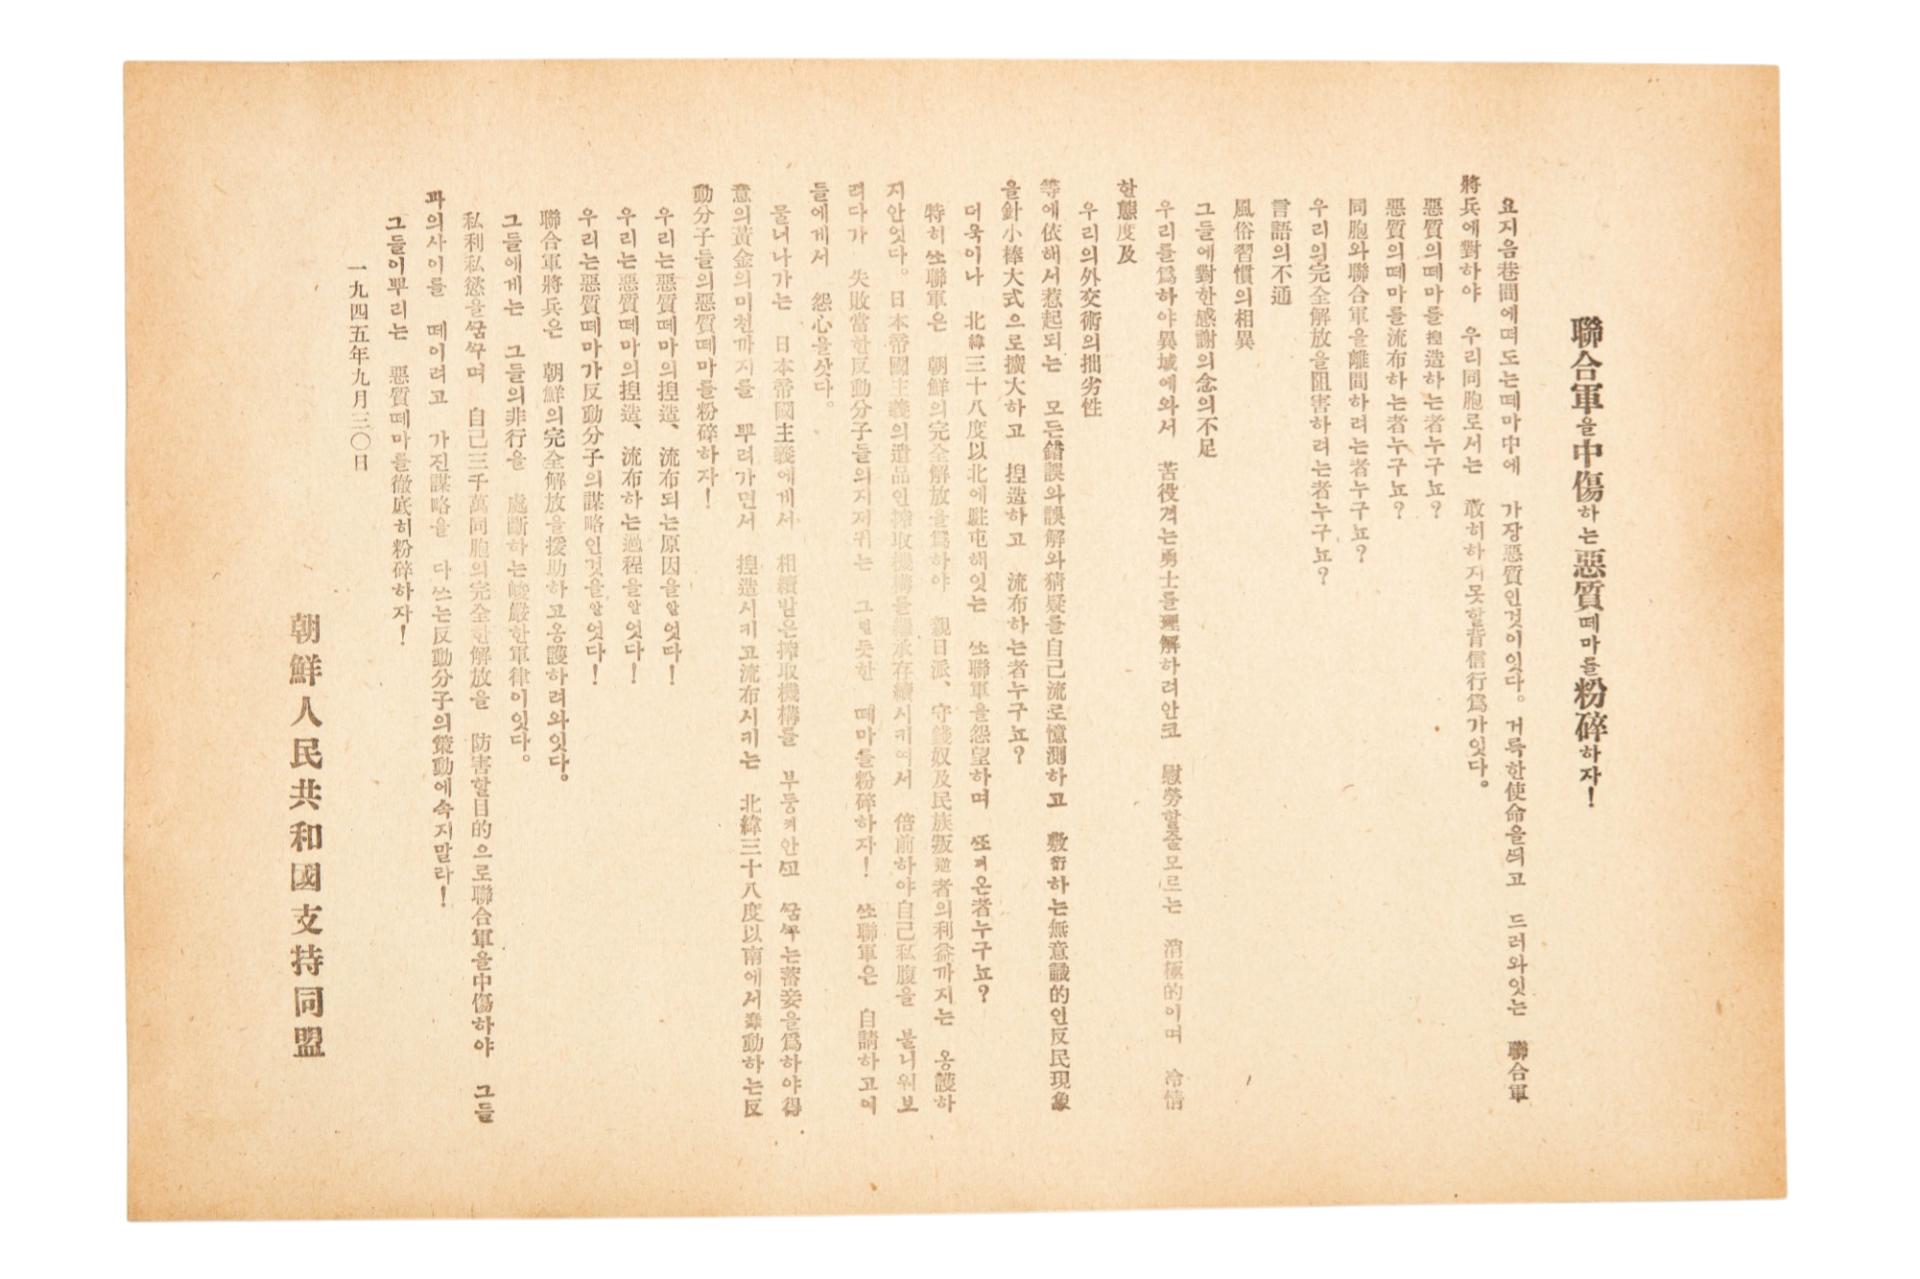 聯合軍을中傷하는惡質떼마를粉碎하자!
요지음巷間에떠도는떼마中에 가장惡質인것이잇다。거륵한使命을띄고 드러와잇는 聯合軍
將兵에對하야 우리同胞로서는 敢히하지못할背信行爲가잇다。
惡質의떼마를揑造하는者누구뇨?
惡質의떼마를流布하는者누구뇨?
同胞와聯合軍을離間하려는者누구뇨?
우리의完全解放을阻害하려는者누구뇨?
言語의不通
風俗習慣의相異
그들에對한感謝의念의不足
우리를爲하야異域에와서 苦役격는勇士를理解하려안코 慰勞할줄모르는 消極的이며 冷情
한態度及
우리의外交術의拙劣性
等에依해서惹起되는 모든錯誤와誤解와猜疑를自己流로憶測하고 敷衍하는無意識的인反民現象
을針小棒大式으로擴大하고 揑造하고 流布하는者누구뇨?
더욱이나 北緯三十八度以北에駐屯해잇는 쏘聯軍을怨望하며 또꺼온者누구뇨?
特히쏘聯軍은 朝鮮의完全解放을爲하야 親日派、守錢奴及民族叛逆者의利益까지는 옹護하
지안엇다。日本帝國主義의遺品인搾取機構를繼承存續시키여서 倍前하야自己私腹을 불니워보
려다가 失敗當한反動分子들의지저귀는 그럿듯한 떼마를粉碎하자! 쏘聯軍은 自請하고이
들에게서 怨心을삿다。
물너나가는 日本帝國主義에게서 相續받은搾取機構를 부둥켜안고 꿈꾸는蓄妾을爲하야得
意의黃金의미천까지를 뿌려가면서 揑造시키고流布시키는 北緯三十八度以南에서蠢動하는反
動分子들의惡質떼마를粉碎하자!
우리는惡質떼마의揑造、流布되는原因을알엇다!
우리는惡質떼마의揑造、流布하는過程을알엇다!
우리는惡質떼마가反動分子의謀略인것을알엇다!
聯合軍將兵은 朝鮮의完全解放을援助하고옹護하려와잇다。
그들에게는 그들의非行을 處斷하는峻嚴한軍律이잇다。
私利私慾을꿈꾸며 自己三千萬同胞의完全한解放을 防害할目的으로聯合軍을中傷하야 그들
과의사이를 떼이려고 가진謀略을 다쓰는反動分子의策動에속지말라!
그들이뿌리는 惡質떼마를徹底히粉碎하자!
一九四五年九月三〇日
朝鮮人民共和國支持同盟